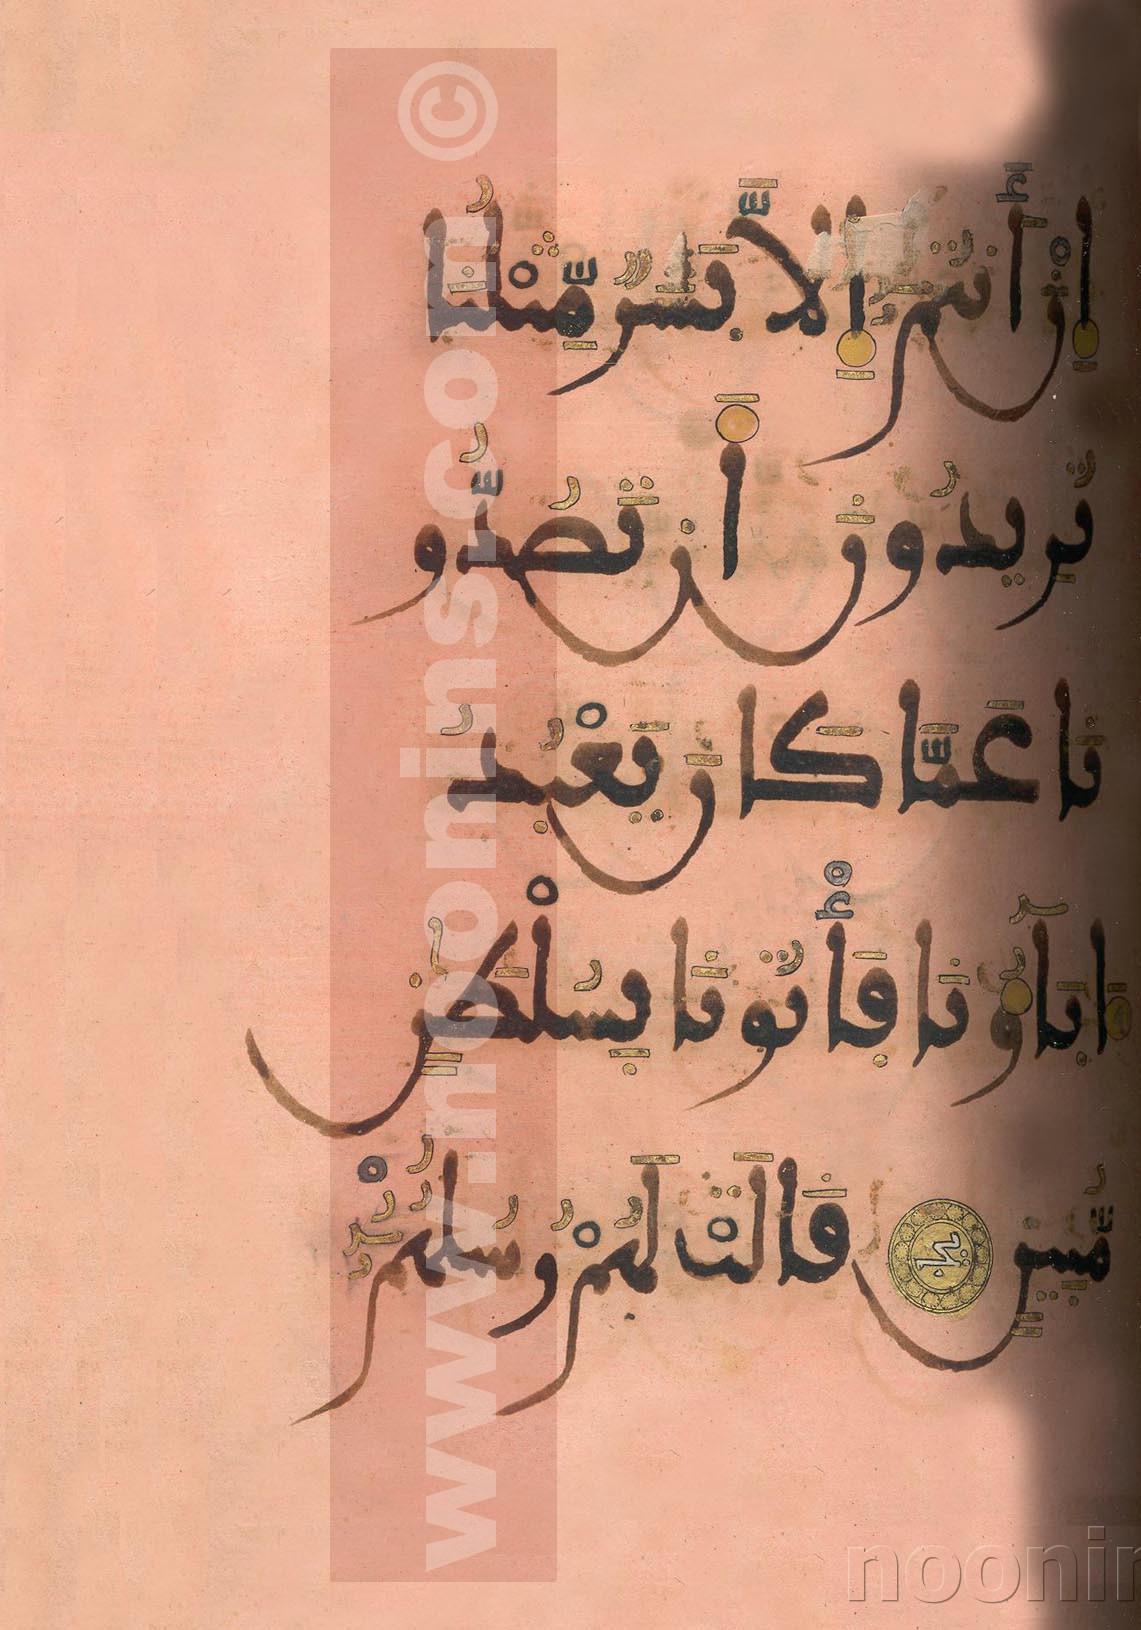 إِنْ أَنتُمْ إِلَّا بَشَرٌ مِّثْلُنَا
تُرِيدُونَ أَن تَصُدُّو
نَا عَمَّا كَانَ يَعْبُدُ
ءَابَآؤُنَا فَأْتُونَا بِسُلْطَٰنٍ
مُّبِينٍ قَالَتْ لَهُمْ رُسُلُهُمْ
www.noonins.com ©
noonin